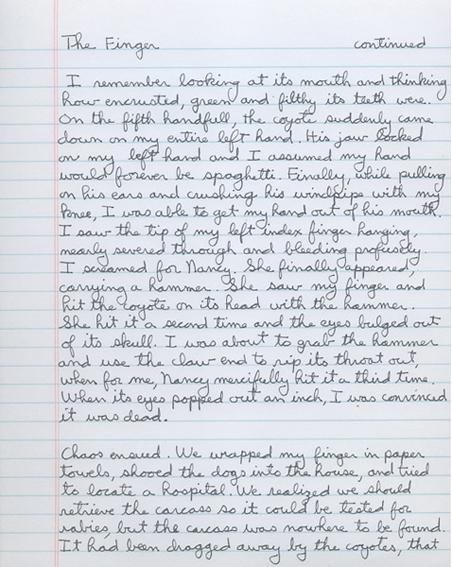 The Finger continued
I remember looking at its mouth and thinking
how encrusted, green and filthy its teeth were.
On the fifth handfull, the coyote suddenly came
down on my entire left hand. His jaw locked
on my left hand and I assumed my hand
would forever be spaghetti. Finally, while pulling
on his ears and crushing his windpipe with my
knee, I was able to get my hand out of his mouth.
I saw the tip of my left index finger hanging,
nearly severed through and bleeding profusely.
I screamed for Nancy. She finally appeared,
carrying a hammer. She saw my finger and
hit the coyote on its head with the hammer.
She hit it a second time and the eyes bulged out
of its skull. I was about to grab the hammer
and use the claw end to rip its throat out,
when for me, Nancy mercifully hit it a third time.
When its eyes popped out an inch, I was convinced
it was dead.
Chaos ensued. We wrapped my finger in paper
towels, shooed the dogs into the house, and tried
to locate a hospital. We realized we should
retrieve the carcass so it could be tested for
rabies, but the carcass was nowhere to be found.
It had been dragged away by the coyotes, that